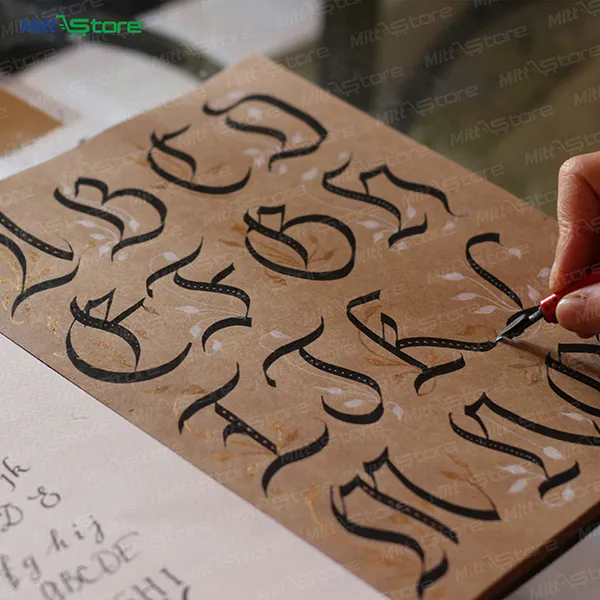 MiltAStore
A B C D
E F G H
I J K L
M N O
jk
D E
f g h i j
ABCDE
H I